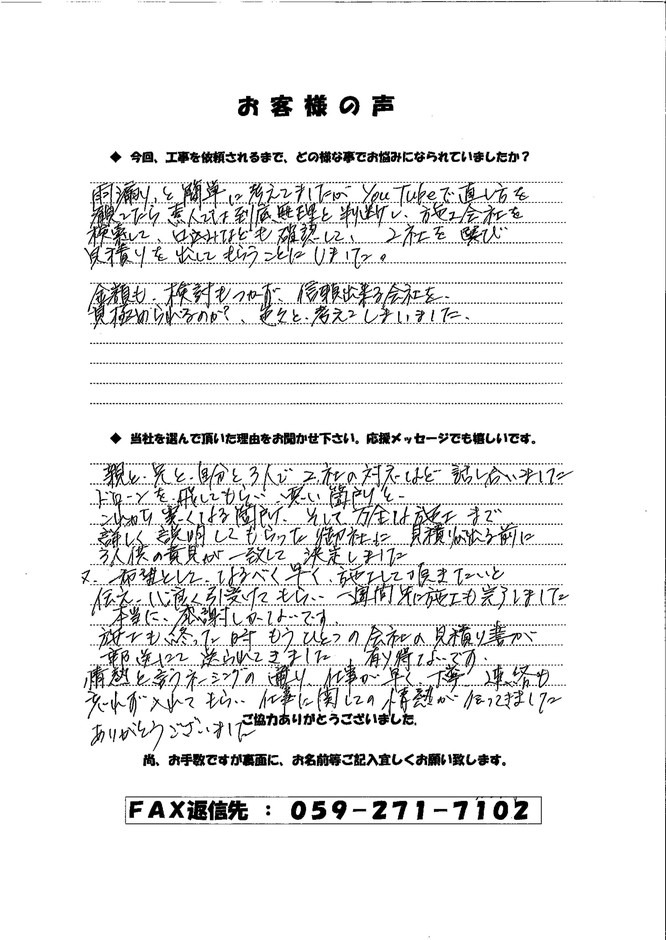 お客様の声
◆ 今回、工事を依頼されるまで、どの様な事でお悩みになられていましたか？
雨漏り、と簡単に考えてましたが YouTubeで直し方を
観てたら素人では到底無理と判断し、施工会社を
検索して、口込みなども確認して、 2社を選び
見積りを出してもらうことにしました。
金額も、検討もつかず、信頼出来る会社を、
見極められるのか？、色々と、考えてしまいました、
◆ 当社を選んで頂いた理由をお聞かせ下さい。応援メッセージでも嬉しいです。
親と、兄と、自分と、3人で 2社の対応など 話し合いました
ドローンを飛してもらい、悪い箇所と、
これから悪くなる箇所、そして万全な施工まで
詳しく説明してもらった御社に 見積りが出る前に
3人供の意見が一致して 決定しました
又、希望として、なるべく早く、施工して頂きたいと
伝え、心良く引受けてもらい、一週間先に施工も完了しました
本当に、感謝しかないです。
施工も終った時 もうひとつの会社の見積り書が
郵送にて 送られてきました 有り得ないです、
情熱と言うネーミングの通り、仕事が早く、丁寧、連絡も
忘れず入れてもらい、仕事に関しての情熱が伝ってきました
ご協力ありがとうございました。
ありがとうございました
尚、お手数ですが裏面に、お名前等ご記入宜しくお願い致します。
FAX返信先 ： 059-271-7102